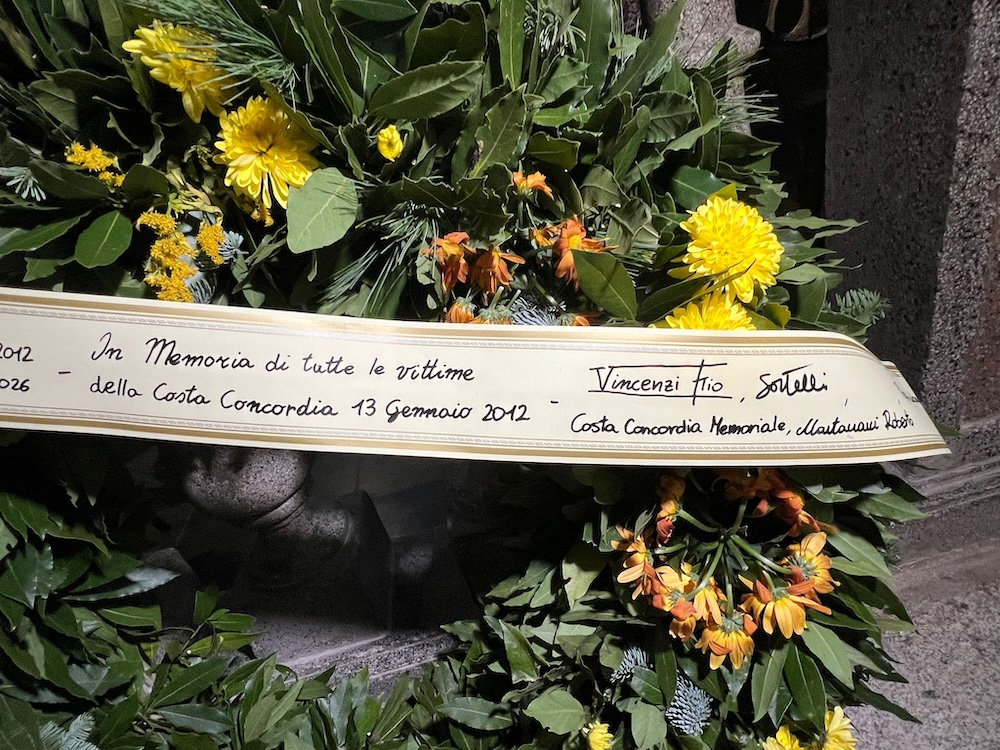 2012
2026
In Memoria di tutte le vittime
della Costa Concordia 13 Gennaio 2012 -
Vincenzi Fio, Sortelli,
Costa Concordia Memoriale, Roberto